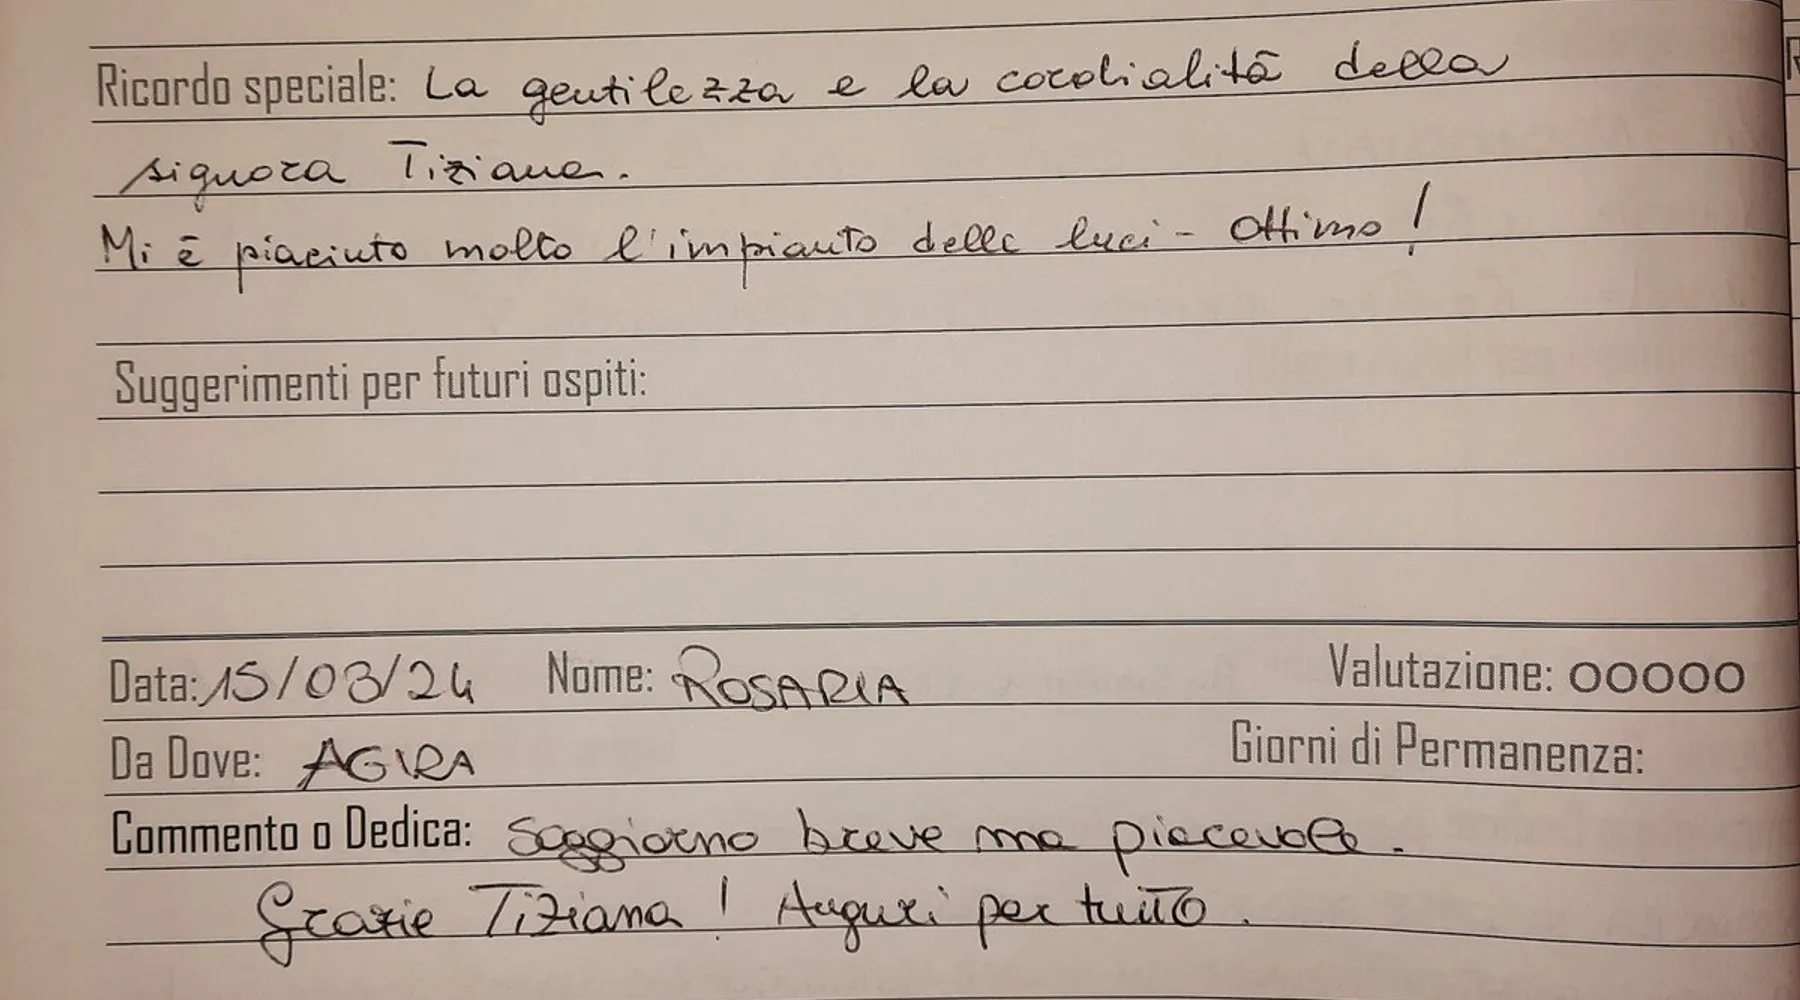 Ricordo speciale: La gentilezza e la cordialità della
signora Tiziana.
Mi è piaciuto molto l'impianto delle luci - Ottimo!
Suggerimenti per futuri ospiti:
Data: 15/03/24 Nome: ROSARIA Valutazione: OOOOO
Da Dove: AGIRA Giorni di Permanenza:
Commento o Dedica: Soggiorno breve ma piacevole.
Grazie Tiziana! Auguri per tutto.